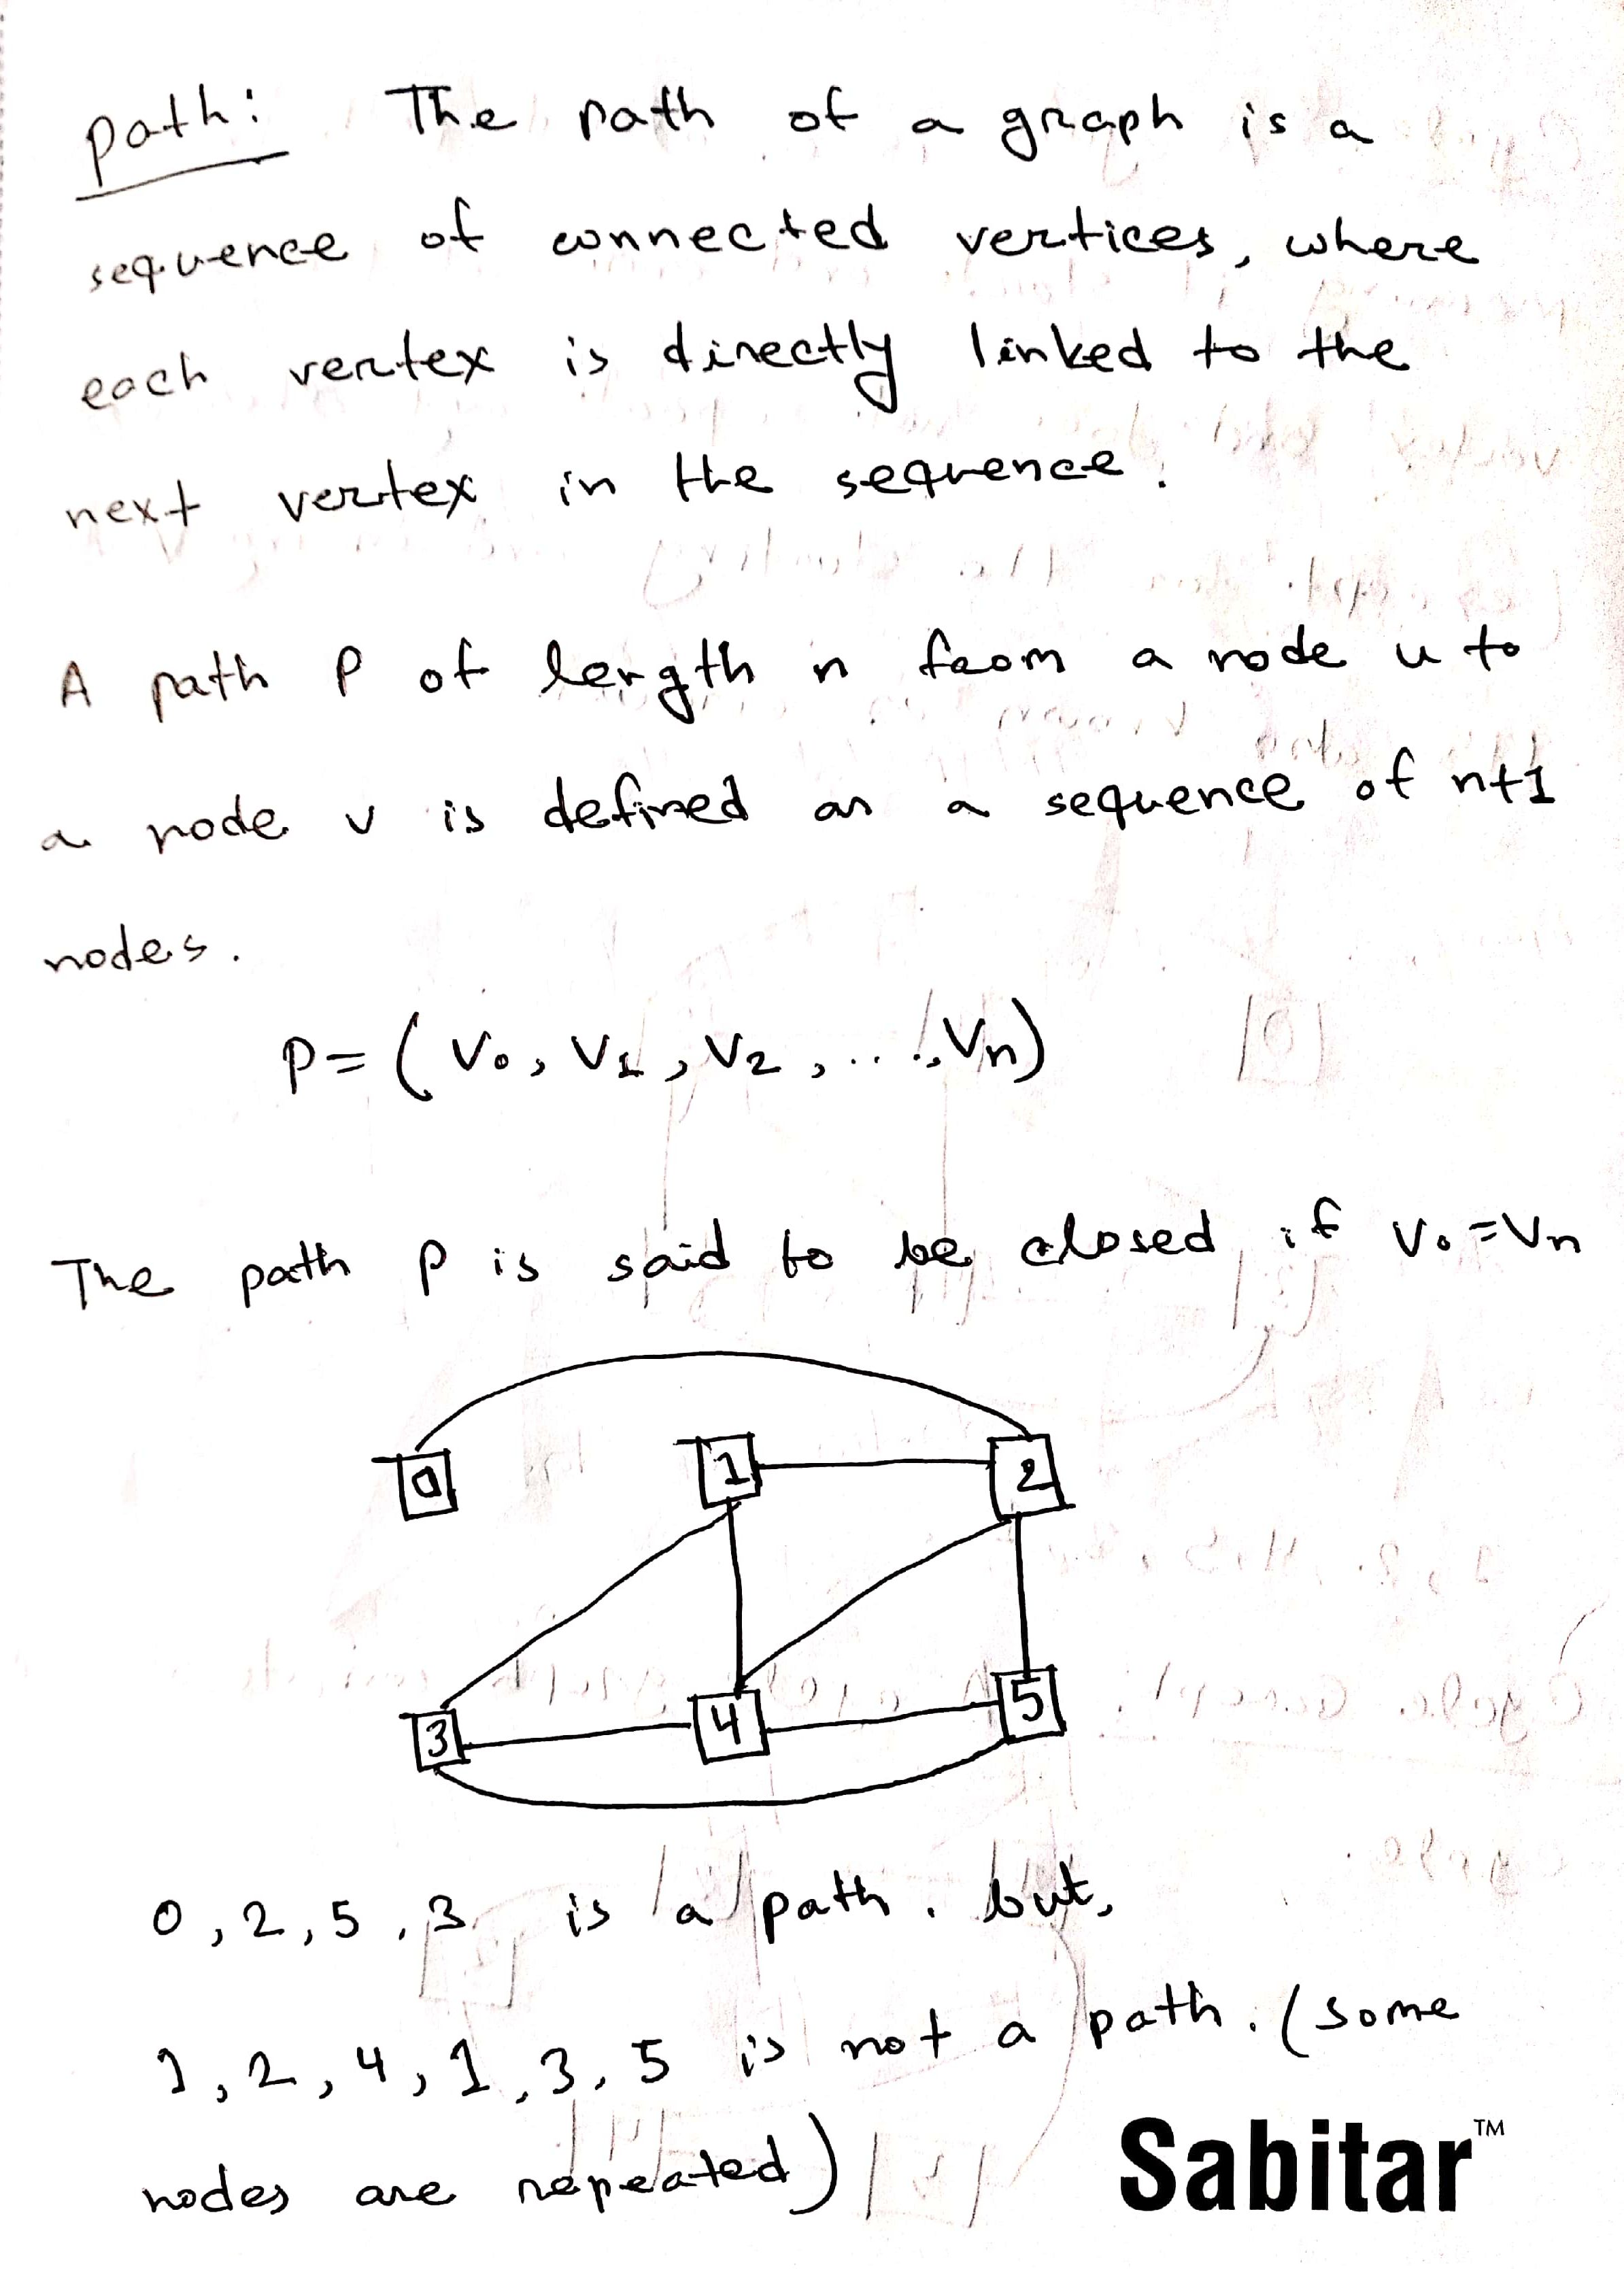 path: The path of a graph is a
sequence of connected vertices, where
each vertex is directly linked to the
next vertex in the sequence.
A path P of length n from a node u to
a node v is defined as a sequence of n+1
nodes.
P = ( V0, V1, V2, ...., Vn)
The path P is said to be closed if V0 = Vn
0 1 2
3 4 5
0, 2, 5, 3 is a path. but,
1, 2, 4, 1, 3, 5 is not a path. (some
nodes are repeated)
Sabitar™